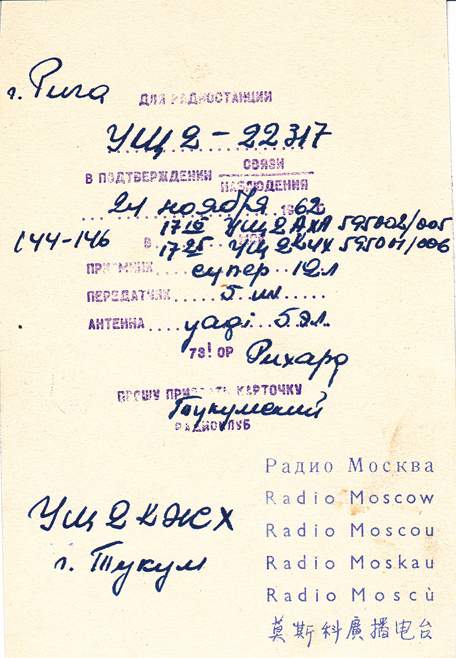 г. Рига
ДЛЯ РАДИОСТАНЦИИ
УЩ2-22317
В ПОДТВЕРЖДЕНИИ СВЯЗИ
НАБЛЮДЕНИЯ
24 ноября 1962
144-146 в 17 10 УЩ2АХА 595002/005
17 25 УЩ2 595001/006
ПРИЕМНИК супер 12л
ПЕРЕДАТЧИК 5 
АНТЕННА yagi 5эл.
73! ОР Рихард
ПРОШУ ПРИСЛАТЬ КАРТОЧКУ
Тукумский
РАДИОКЛУБ
Радио Москва
Radio Moscow
УЩ2КЖХ
Radio Moscou
г. Тукум
Radio Moskau
Radio Moscù
莫斯科廣播电台